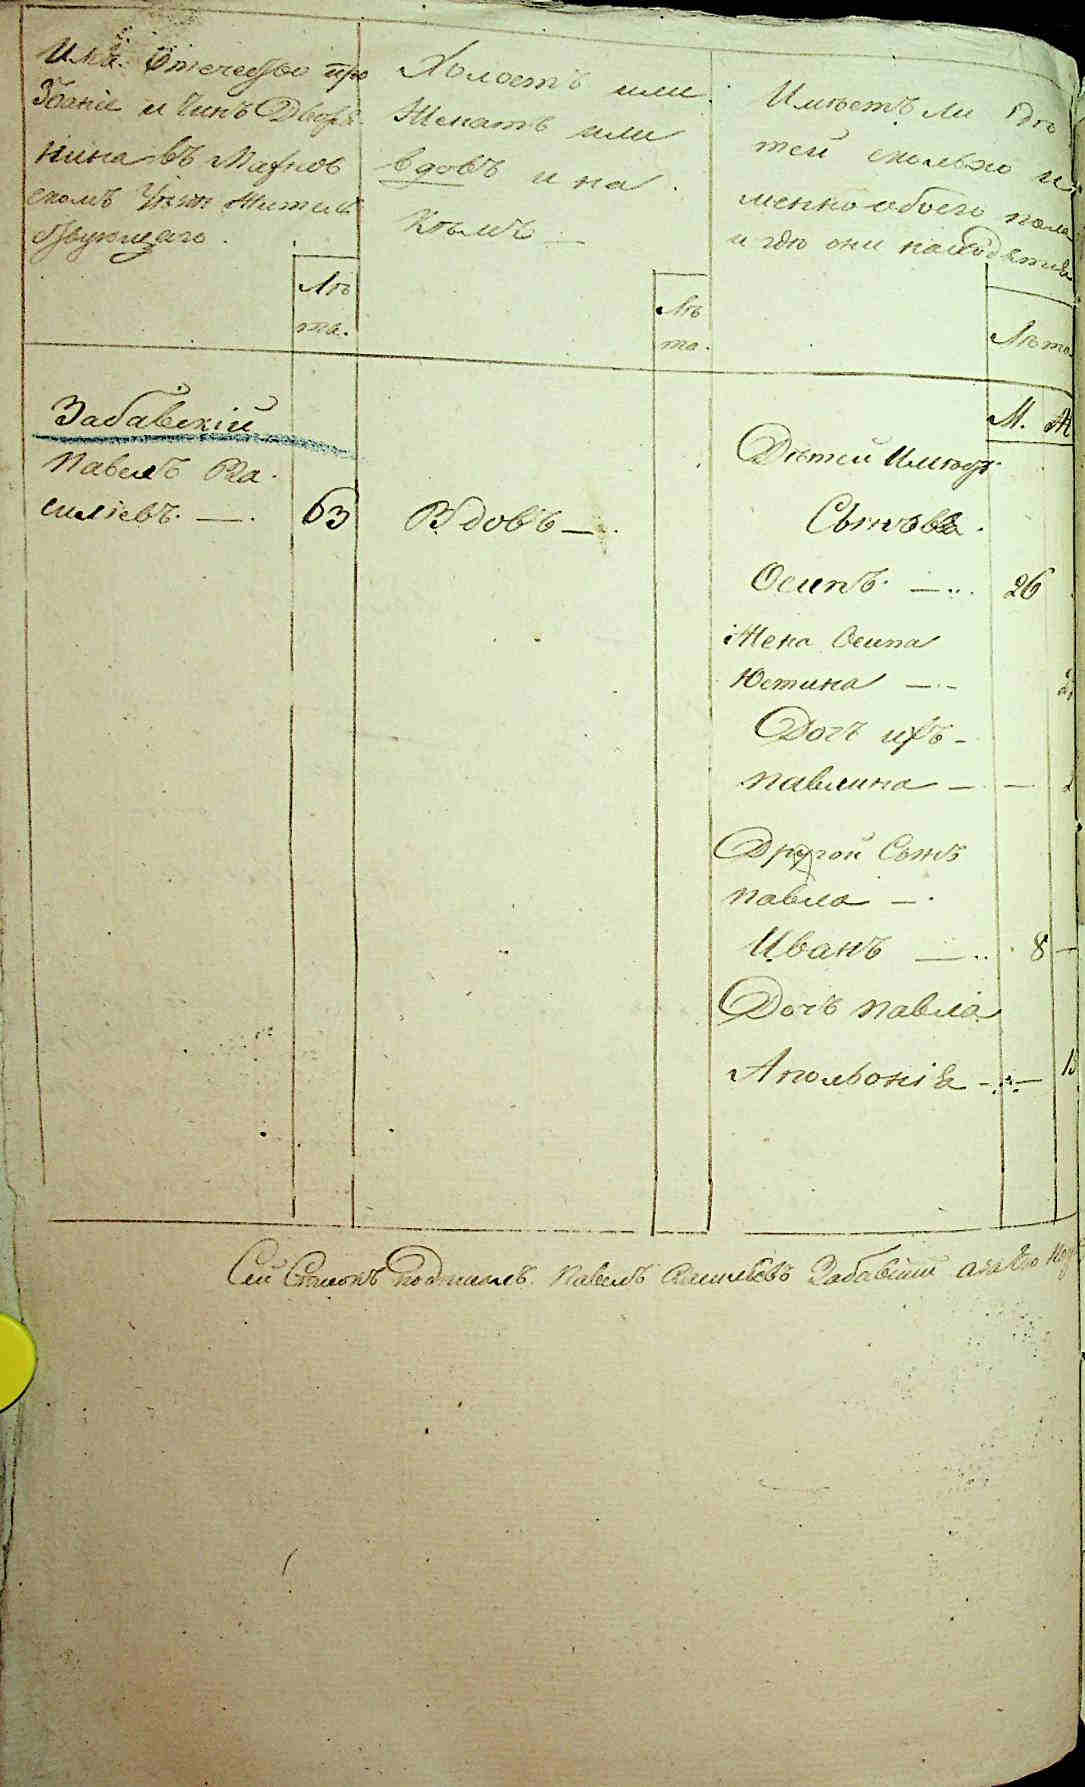 Имя. Отечество про
званіе и Чинъ Дворя
нина въ Махнов
скомъ Уездѣ Жител
ствующаго.
Лѣ
та.
Холостъ или
Женатъ или
вдовъ и на
Комъ —
Лѣ
та.
Имѣетъ ли дѣ
тей сколько и
менно обоего пола
и гдѣ они находятся
Лѣта
М. Ж
Забавскій
Павелъ Ва
силіевъ. —.
63
Вдовъ —.
Дѣтей Имѣетъ
Сыновъ.
Осипъ. — .. 26
Жена Осипа
Юстина —
Дочъ ихъ -
Павлина — —
Другой Сынъ
Павла —.
Иванъ — .. 8 —
Дочъ Павла
Аполлонія —
Сей Списокъ подписалъ Павелъ Василіевъ Забавскій